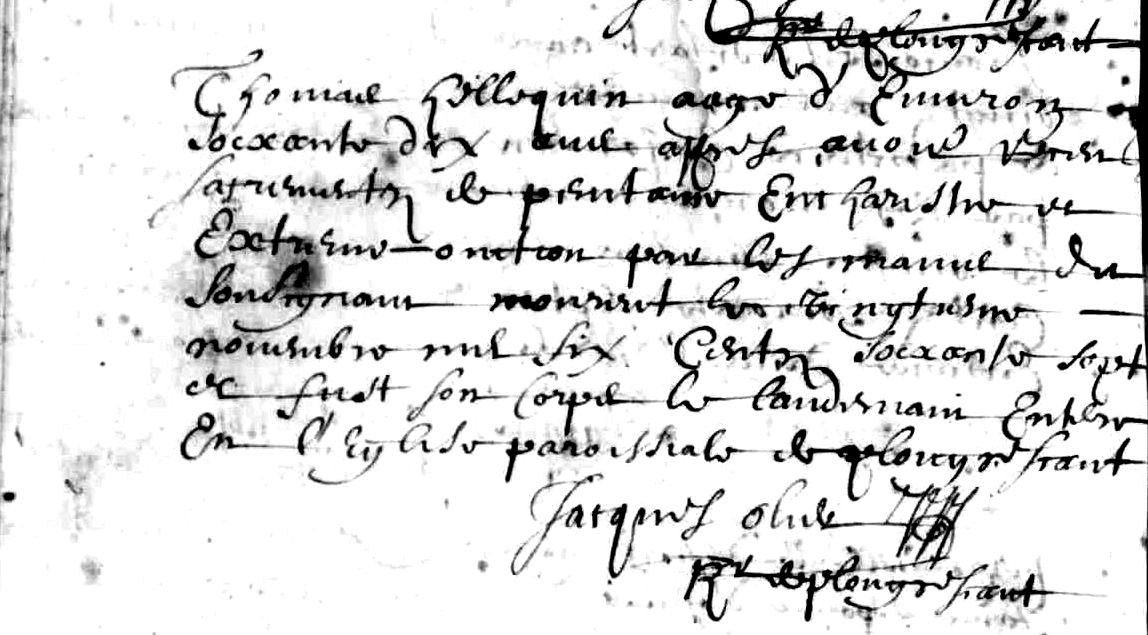 Rr de plougrescant
Thomas hellequin aage d'Environ
Soixante dix ans appres avoir receu
sacrements de penitance Eucharistie et
Extreme onction par les mains du
Soubsignant mourut le vingtiesme
novembre mil six Cents soixante sept
et fust son corps le landemain Enterre
En l'Eglise paroissiale de plougrescant
Jacques olive
Rr de plougrescant